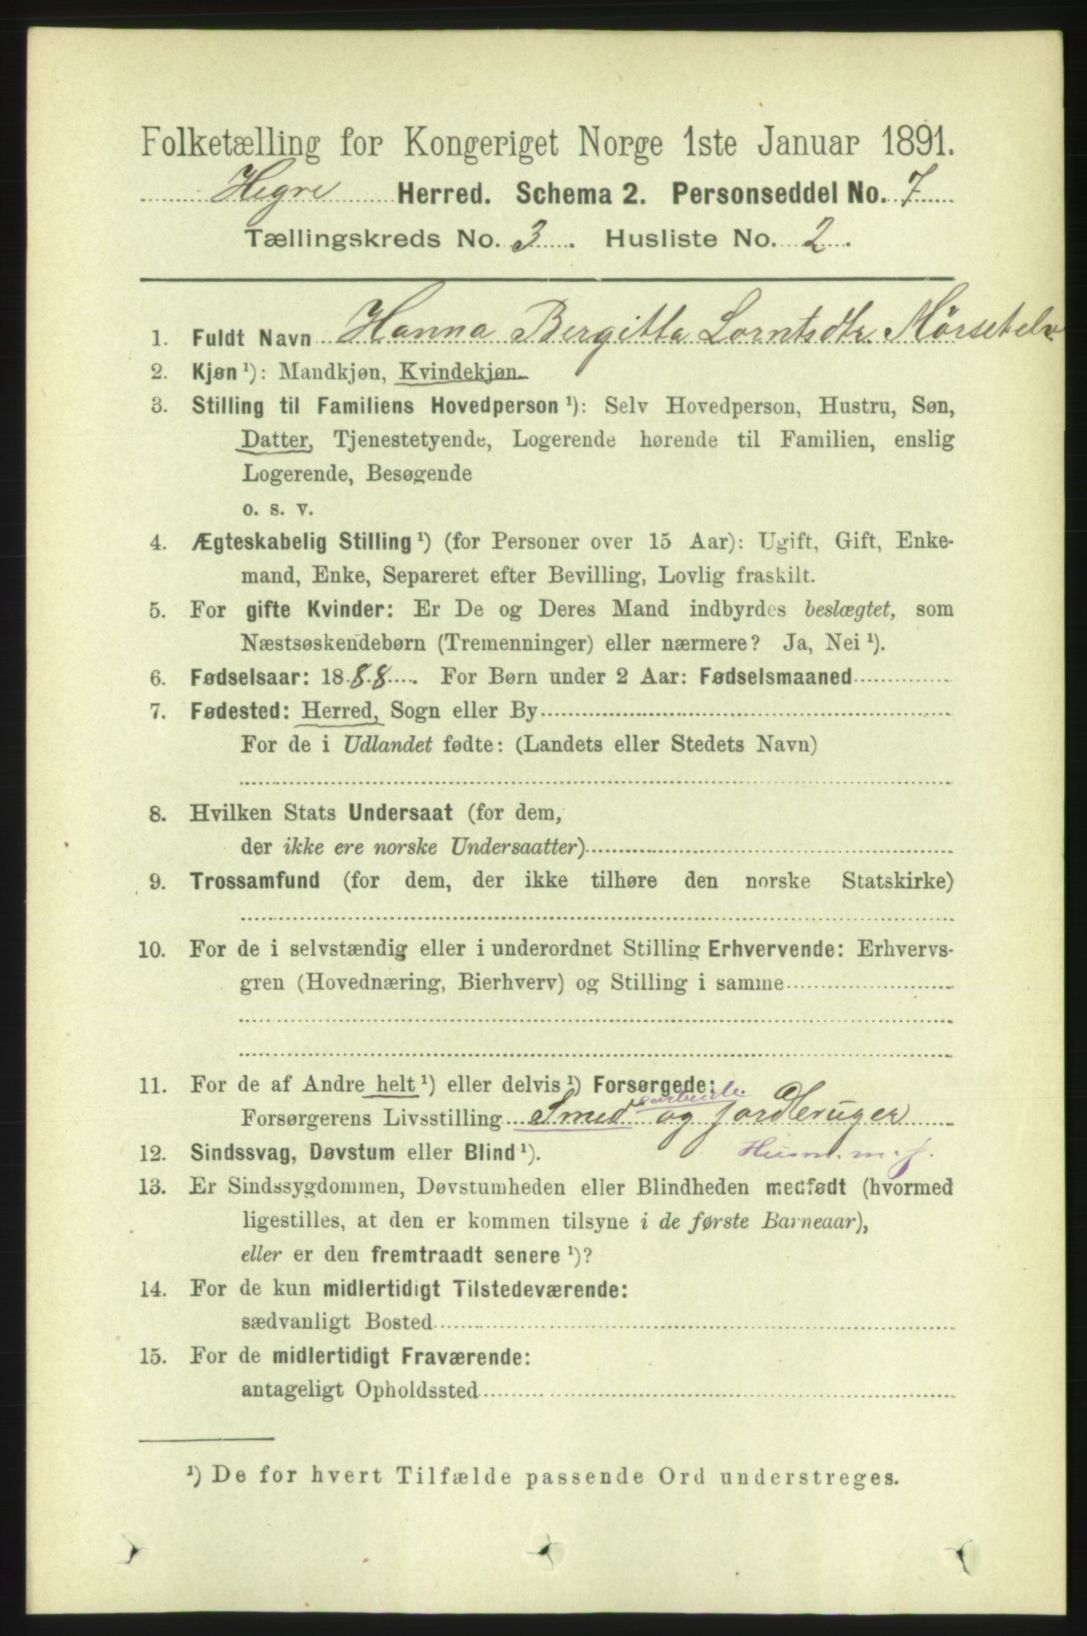 Folketælling for Kongeriget Norge 1ste Januar 1891.
Hegre Herred. Schema 2. Personseddel No. 7
Tællingskreds No. 3. Husliste No. 2.
1. Fuldt Navn Hanna Bergitta Lorntsdtr. Mörsetelv
2. Kjøn ¹): Mandkjøn, Kvindekjøn.
3. Stilling til Familiens Hovedperson ¹): Selv Hovedperson, Hustru, Søn,
Datter, Tjenestetyende, Logerende hørende til Familien, enslig
Logerende, Besøgende
o. s. v.
4. Ægteskabelig Stilling ¹) (for Personer over 15 Aar): Ugift, Gift, Enke-
mand, Enke, Separeret efter Bevilling, Lovlig fraskilt.
5. For gifte Kvinder: Er De og Deres Mand indbyrdes beslægtet, som
Næstsøskendebørn (Tremenninger) eller nærmere? Ja, Nei ¹).
6. Fødselsaar: 1888. For Børn under 2 Aar: Fødselsmaaned
7. Fødested: Herred, Sogn eller By
For de i Udlandet fødte: (Landets eller Stedets Navn)
8. Hvilken Stats Undersaat (for dem,
der ikke ere norske Undersaatter)
9. Trossamfund (for dem, der ikke tilhøre den norske Statskirke)
10. For de i selvstændig eller i underordnet Stilling Erhvervende: Erhvervs-
gren (Hovednæring, Bierhverv) og Stilling i samme
11. For de af Andre helt ¹) eller delvis ¹) Forsørgede:
Forsørgerens Livsstilling Smed og Jordbruger
12. Sindssvag, Døvstum eller Blind ¹). Husm. m. j.
13. Er Sindssygdommen, Døvstumheden eller Blindheden medfødt (hvormed
ligestilles, at den er kommen tilsyne i de første Barneaar),
eller er den fremtraadt senere ¹)?
14. For de kun midlertidigt Tilstedeværende:
sædvanligt Bosted
15. For de midlertidigt Fraværende:
antageligt Opholdssted
¹) De for hvert Tilfælde passende Ord understreges.